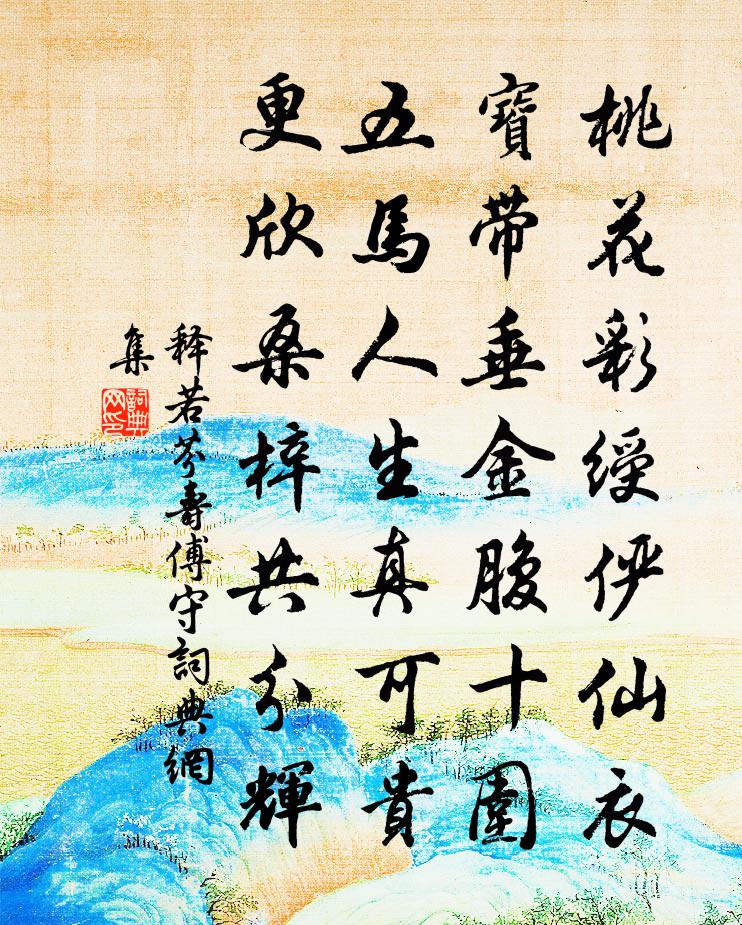 桃花彩綬伊仙衣
寶帶垂金腹十圍
五馬人生真可貴
更欣桑梓共分輝
释若芬壽傅守詞典網
集
詞典
网印